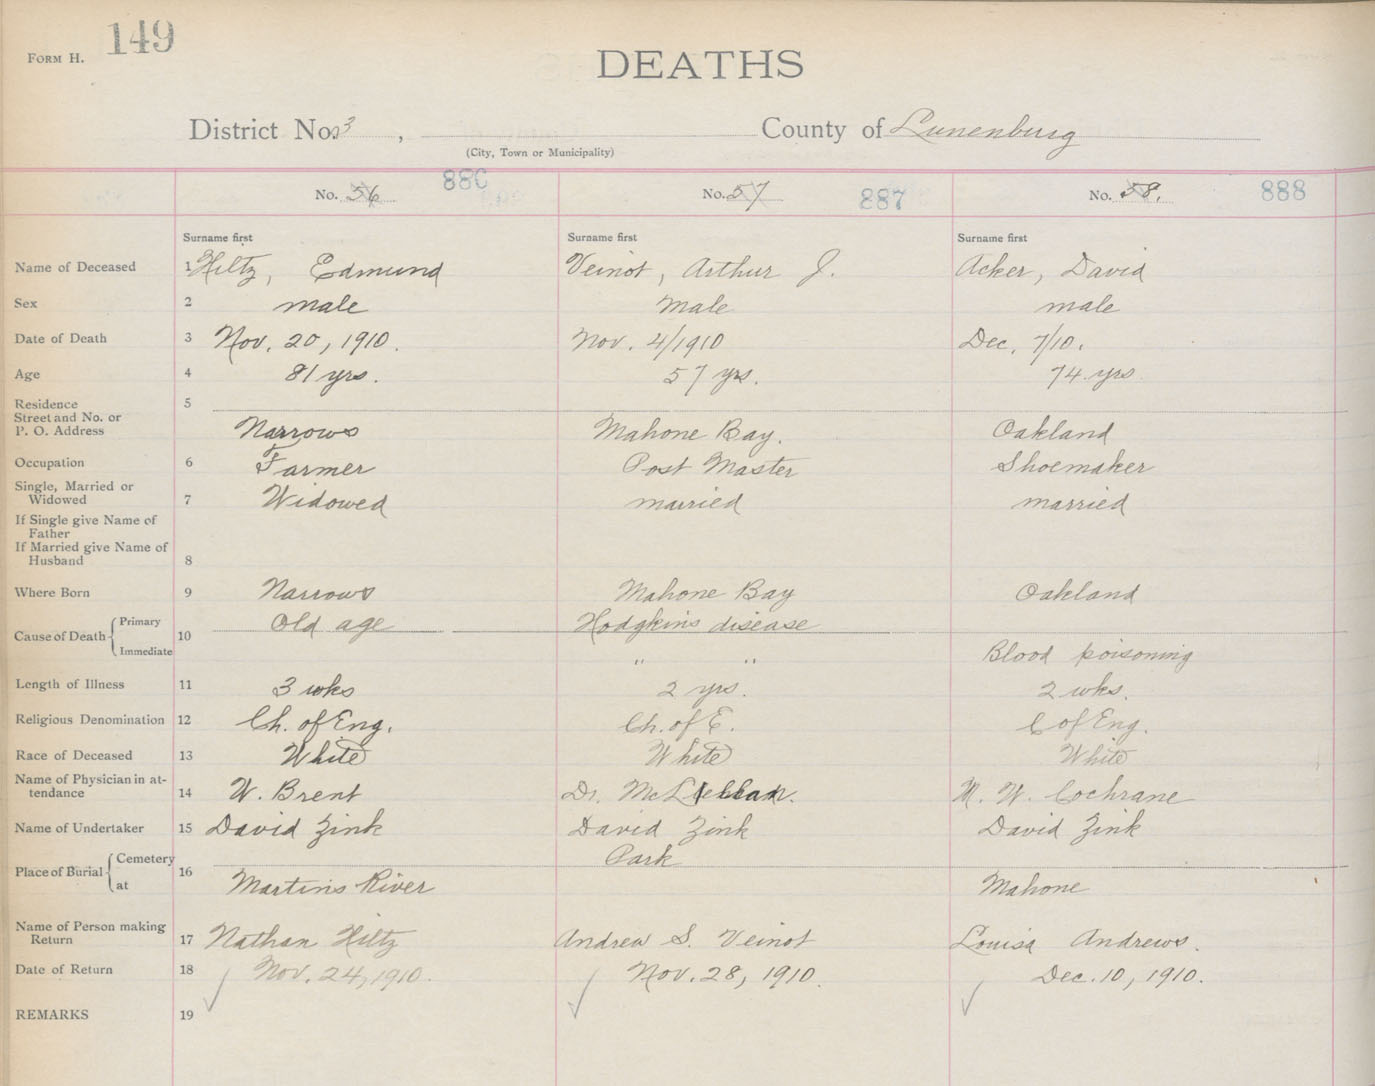 149
FORM H.
DEATHS
District No. 3, County of Lunenburg
(City, Town or Municipality)
No. 56 886 No. 57 887 No. 58. 888
Surname first Surname first Surname first
Name of Deceased 1 Hiltz, Edmund Veinot, Arthur J. Acker, David
Sex 2 male Male male
Date of Death 3 Nov. 20, 1910. Nov. 4/1910 Dec. 7/10.
Age 4 81 yrs. 57 yrs. 74 yrs
Residence 5
Street and No. or
P. O. Address Narrows Mahone Bay. Oakland
Occupation 6 Farmer Post Master Shoemaker
Single, Married or
Widowed 7 Widowed married married
If Single give Name of
Father
If Married give Name of
Husband 8
Where Born 9 Narrows Mahone Bay Oakland
Cause of Death Primary 10 Old age Hodgkins disease
Immediate " " Blood poisoning
Length of Illness 11 3 wks 2 yrs. 2 wks.
Religious Denomination 12 Ch. of Eng. Ch. of E. C of Eng.
Race of Deceased 13 White White White
Name of Physician in at-
tendance 14 W. Brent Dr. McLellan. M. W. Cochrane
Name of Undertaker 15 David Zink David Zink David Zink
Place of Burial Cemetery 16 Park
at Martins River Mahone
Name of Person making
Return 17 Nathan Hiltz Andrew S. Veinot Louisa Andrews.
Date of Return 18 Nov. 24, 1910. Nov. 28, 1910. Dec. 10, 1910.
REMARKS 19